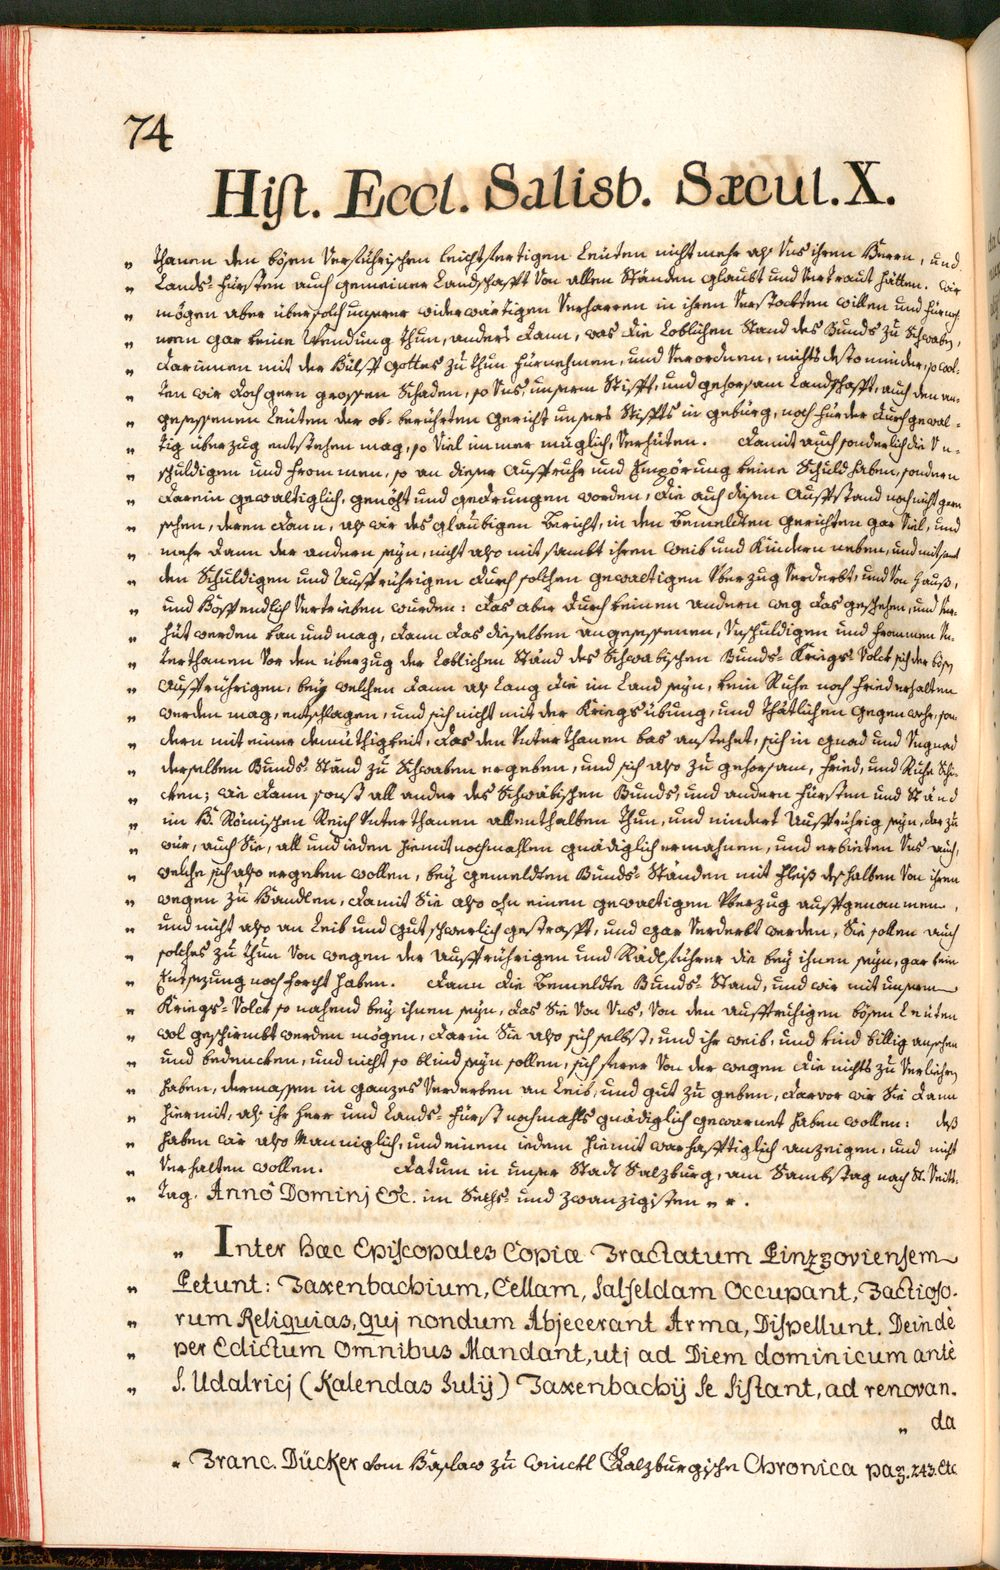 74
Hist. Eccl. Salisb. Sæcul. X.
„ thanen den bösen Verführischen leichtfertigen Leüten nicht mehr als Uns ihren Herrn, und
„ Lands-Fürsten auch gemeiner Landschafft Von allen Ständen glaubt und Vertraut hätten. Wir
„ mögen aber über solch unserer widerwärtigen Verharren in ihren Verstockten willen und
„ men gar keine Wendung thun, anders dann, was die Loblichen Ständ des Bunds zu Schwaben,
„ darinnen mit der Hülff Gottes zu thun fürnehmen, und Verordnen, nichts desto minder, so wol-
„ ten wir doch gern grossen Schaden, so Uns, unserm Stifft, und gehorsam Landschafft, auch den an-
„ gesessenen Leüten der ob-berührten Gericht unsers Stiffts in gebürg, noch für der durch gewal-
„ tig überzug entstehen mag, so Viel immer müglich, Verhüten. Damit auch sonderlich die Un-
„ schuldigen und frommen, so an dieser Auffruhr und Empörung keine Schuld haben, sondern
„ darein gewaltiglich, genöht und gedrungen worden, die auch disen Auffstand noch nicht gern
„ sehen, deren dann, als wir des glaubigen Bericht, in den Bemeldten Gerichten gar Viel, und
„ mehr dann der andern seyn, nicht also mit sambt ihren Weib und Kindern neben, und mitsamt
„ den Schuldigen und Auffrührigen durch solchen gewaltigen Überzug Verderbt, und Von Hauß,
„ und Hoff endlich Vertrieben wurden: das aber durch keinen andern weg das geschehen, und Ver-
„ hüt werden kan und mag, dann das dieselben angesessenen, Unschuldigen und frommen Un-
„ terthanen Vor den überzug der Loblichen Ständ des Schwabischen Bunds-Kriegs-Volck sich der bösen
„ Auffrührigen, bey welchen dann als lang die im Land seyn, kein Ruhe noch Fried erhalten
„ werden mag, entschlagen, und sich nicht mit der Kriegsübung, und Thätlichen Gegenwehr, son-
„ dern mit einer demüthigkeit, das den Unterthanen bas anstehet, sich in gnad und Ungnad
„ derselben Bunds-Ständ zu Schwaben ergeben, und sich also zu gehorsam, Fried, und Ruhe Schi-
„ cken; wie dann sonst all ander des Schwäbischen Bunds und andern Fürsten und Ständ
„ im H. Römischen Reich Unterthanen allenthalben thun, und nindert Auffrührig seyn, der zu
„ wir, auch Sie, all und ieden hiemit nochmahlen gnädiglich ermahnen, und erbieten Uns auch,
„ welche sich also ergeben wollen, bey gemeldten Bunds-Ständen mit fleiß deshalben Von ihren
„ wegen zu Handlen, damit Sie also ohn einen gewaltigen Überzug auffgenommen,
„ und nicht also an Leib und gut schwerlich gestrafft, und gar Verderbt werden, Sie sollen auch
„ solches zu thun Von wegen der Auffrührigen und Rädlführer die bey ihnen seyn, gar kein
„ Entsezung noch forcht haben. Dann die Bemeldte Bunds-Ständ, und wir mit unserm
„ Kriegs-Volck so nahend bey ihnen seyn, das Sie Von Uns, Von den auffruhigen bösen Leüten
„ wol geschirmbt werden mögen, darin Sie also sich selbst, und ihr weib, und kind billig ansehen
„ und bedencken, und nicht so blind seyn sollen, sich ferrer Von der wegen die nichts zu Verliehren
„ haben, dermassen in ganzes Verderben an Leib, und gut zu geben, darvor wir Sie dann
„ hiermit, als ihr Herr und Lands-Fürst nochmahls gnädiglich gewarnet haben wollen: deß
„ haben wir also Manniglich, und einem iedem hiemit warhafftiglich anzeigen, und nicht
„ Verhalten wollen. Datum in unser Stadt Salzburg, am Sambstag nach St. Veitts-
„ Tag. Anno Dominj Etc. im Sechs- und Zwanzigisten „ „ .
„ Inter hæc Episcopales Copiæ Tractatum Pinzgoviensem
„ Petunt: Taxenbachium, Cellam, Salfeldam Occupant, Factioso-
„ rum Reliquias, quj nondum Abjecerant Arma, Dispellunt. Deindè
„ per Edictum Omnibus Mandant, utj ad Diem dominicum antè
„ S. Udalricj (Kalendas Julij) Taxenbachij se sistant, ad renovan-
„ da
„ Franc. Dücker Vom Haslaw zu Winckl Salzburgische Chronica pag. 243. Etc